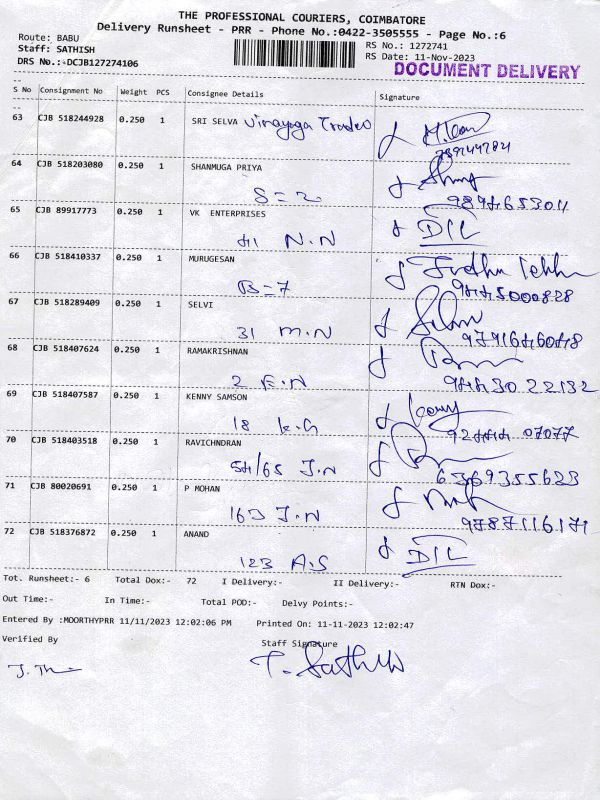 THE PROFESSIONAL COURIERS, COIMBATORE
Delivery Runsheet - PRR - Phone No.:0422-3505555 - Page No.:6
Route: BABU RS No.: 1272741
Staff: SATHISH RS Date: 11-Nov-2023
DRS No.:-DCJB127274106 DOCUMENT DELIVERY
S No Consignment No Weight PCS Consignee Details Signature
63 CJB 518244928 0.250 1 SRI SELVA Vinayaga Trades
64 CJB 518203080 0.250 1 SHANMUGA PRIYA
S = 2 9894653011
65 CJB 89917773 0.250 1 VK ENTERPRISES
41 N.N
66 CJB 518410337 0.250 1 MURUGESAN
B = 7 9445000828
67 CJB 518289409 0.250 1 SELVI
31 M.N 9791646048
68 CJB 518407624 0.250 1 RAMAKRISHNAN
2 E.N 9443022132
69 CJB 518407587 0.250 1 KENNY SAMSON
18 K.G 9244407077
70 CJB 518403518 0.250 1 RAVICHNDRAN
54/65 J.N 6369355623
71 CJB 80020691 0.250 1 P MOHAN
163 J.N 9787116171
72 CJB 518376872 0.250 1 ANAND
123 A.S
Tot. Runsheet:- 6 Total Dox:- 72 I Delivery:- II Delivery:- RTN Dox:-
Out Time:- In Time:- Total POD:- Delvy Points:-
Entered By :MOORTHYPRR 11/11/2023 12:02:06 PM Printed On: 11-11-2023 12:02:47
Verified By Staff Signature
T. Sathish